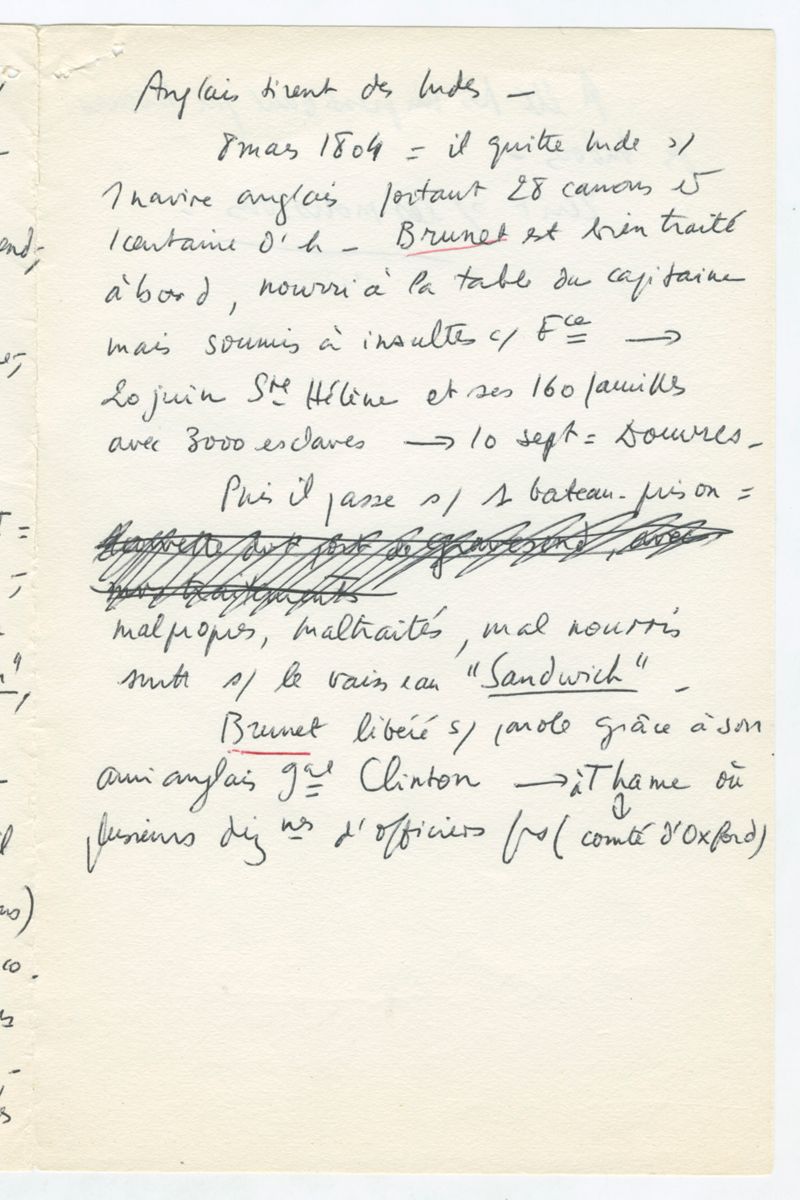 Anglais tirent des Indes –
8 mars 1804 = il quitte Inde s/
1 navire anglais portant 28 canons et
1 centaine d'h – Brunet est bien traité
à bord, nourri à la table du capitaine
mais soumis à insultes c/ Fce →
20 juin Ste Hélène et ses 160 familles
avec 3000 esclaves → 10 sept = Douvres –
Puis il passe s/ 1 bateau-prison =
dont port de Gravesend, avec
traitements
malpropres, maltraités, mal nourris
s/ le vaisseau "Sandwich" –
Brunet libéré s/ parole grâce à son
ami anglais gal Clinton → à Thame où
plusieurs diznes d'officiers frs (comté d'Oxford)
end,
er,
=
"
,
ns)
co.